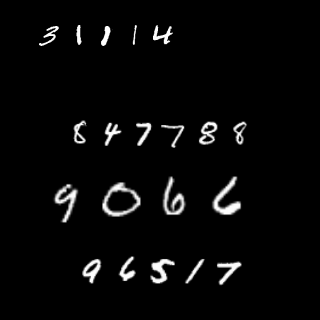 31114
847788
9066
96517